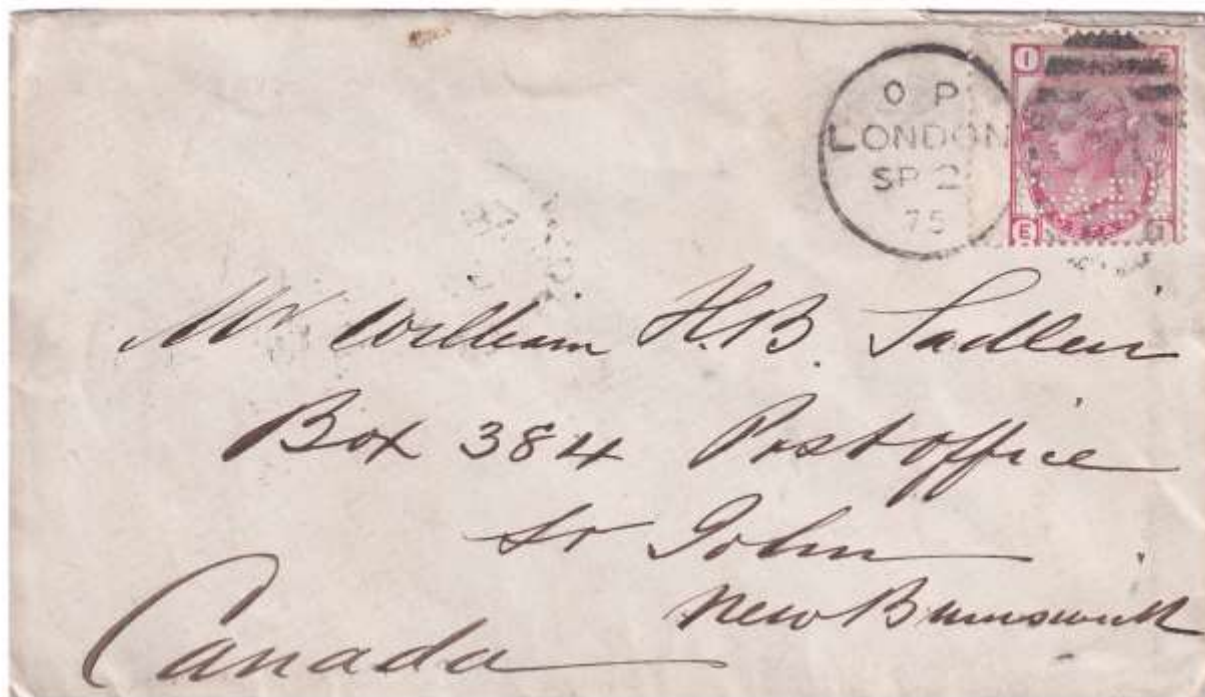 O P
LONDON
SP 2
75
I E
E I
Mr William H.B. Sadleir
Box 384 Post office
St John
New Brunswick
Canada